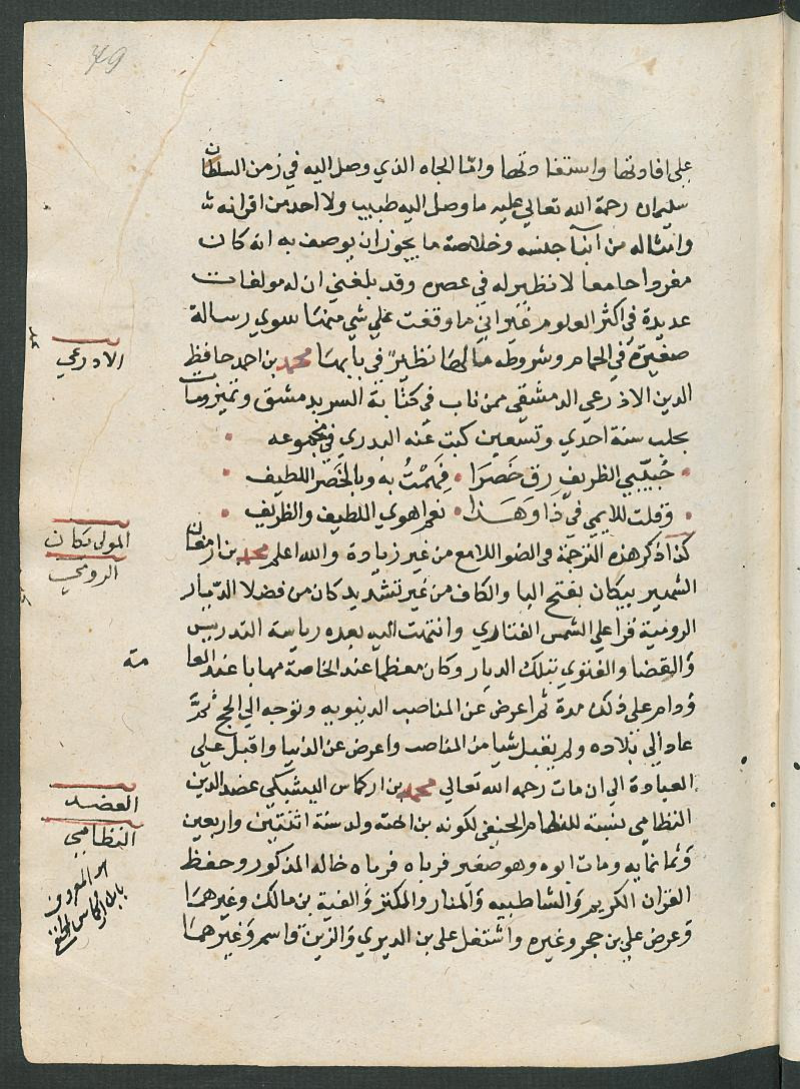 79
على افادتها واستفادتها واما الجاه الذي وصل اليه في زمن السلطان
سليمان رحمة الله تعالى عليه ما وصل اليه طبيب ولا احد من اقرانه
وامثاله من ابنا جنسه وخلاصة ما يجوز ان يوصف به انه كان
مفردا جامعا لا نظير له في عصره وقد بلغني ان له مولفات
عديدة في اكثر العلوم غير اني ما وقفت على شي منها سوى رسالة
صغيرة في الحمام وشروطه ما لها نظير في بابها محمد بن احمد حافظ
الدين الاذرعي الدمشقي ممن ناب في كتابة السر بدمشق وتميز ومات
بحلب سنة احدى وتسعين كتب عنه البدري في مجموعه
حُبيّبي الظريف رق خصرا • فهمتُ به وبالخصر اللطيف
وقلت للايمي في ذا وهذا • نعم اهوى اللطيف والظريف
كذا ذكر هذه الترجمة في الضو اللامع من غير زيادة والله اعلم محمد بن ارمغان
الشهير بيكان بفتح اليا والكاف من غير تشديد كان من فضلا الديار
الرومية قرا على الشمس الفناري وانتهت اليه بعده رياسة التدريس
والقضا والفتوى بتلك الديار وكان معظما عند الخاصة مهابا عند العا
مة
ودام على ذلك مدة ثم اعرض عن المناصب الدنيويه وتوجه الى الحج ثمَّ
عاد الى بلاده ولم يقبل شيا من المناصب واعرض عن الدنيا واقبل على
العبادة الى ان مات رحمه الله تعالى محمد بن اركماس اليشبكي عضد الدين
النظامي نسبة للنظام الحنفي لكونه بن اخته ولد سنة اثنتين واربعين
وثمانمايه ومات ابوه وهو صغير فرباه خاله المذكور وحفظ
القران الكريم والشاطبيه والمنار والكنز والفية بن مالك وغيرهما
وعرض على بن حجر وغيره واشتغل على بن الديري والزين قاسم وغيرهما
الادرعي
المولى يكان
الرومي
العضد
النظامي